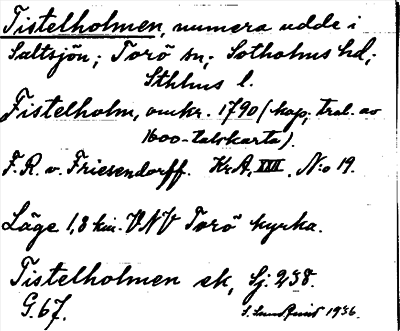 Tistelholmen, numera udde i
Saltsjön; Torö sn; Sotholms hd;
Sthlms l.
Fistelholm, omkr. 1790 (kop. trol. av
1600-talskarta).
F.R. v. Friesendorff. Kr.A. XXII. N:o 19.
Läge 1,8 km. VNV Torö kyrka.
Tistelholmen ek, Sj: 238.
G. 67.
S. Lundquist 1936.